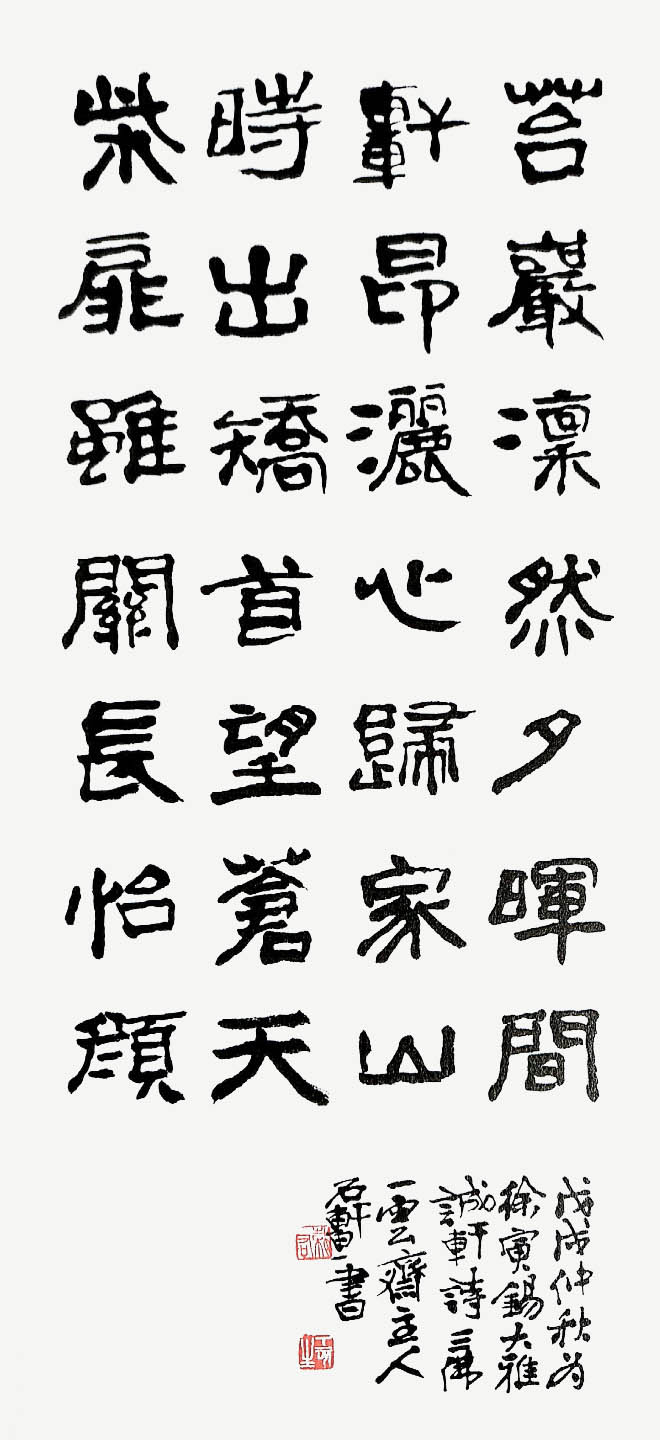 苔巖凜然夕暉間
軒昂灑心歸家山
時出矯首望蒼天
柴扉雖關長怡顔
戊戌仲秋為
徐寅錫大雅
誠軒詩 三佛
一雲齋主人
石軒 書